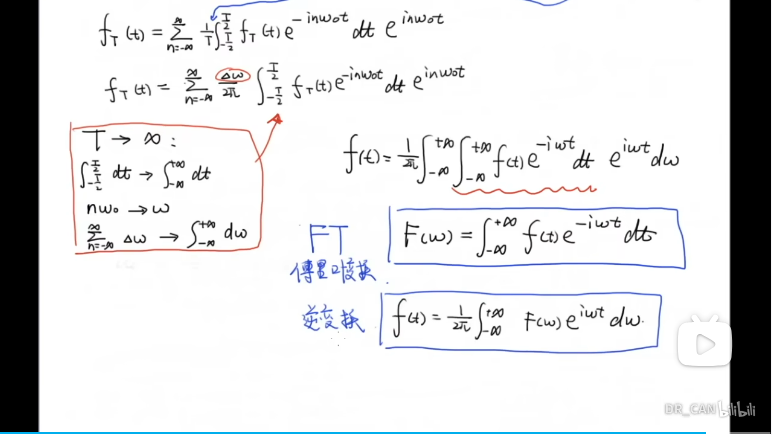 f_T(t) = Σ_{n=-∞}^{∞} 1/T ∫_{-T/2}^{T/2} f_T(t) e^{-inω₀t} dt e^{inω₀t}
f_T(t) = Σ_{n=-∞}^{∞} Δω/2π ∫_{-T/2}^{T/2} f_T(t) e^{-inω₀t} dt e^{inω₀t}
T → ∞ :
∫_{-T/2}^{T/2} dt → ∫_{-∞}^{+∞} dt
nω₀ → ω
Σ_{n=-∞}^{∞} Δω → ∫_{-∞}^{+∞} dω
f(t) = 1/2π ∫_{-∞}^{+∞} ∫_{-∞}^{+∞} f(t) e^{-iωt} dt e^{iωt} dω
FT
F(ω) = ∫_{-∞}^{+∞} f(t) e^{-iωt} dt
变换
逆变换
f(t) = 1/2π ∫_{-∞}^{+∞} F(ω) e^{iωt} dω.
DR_CAN bilibili